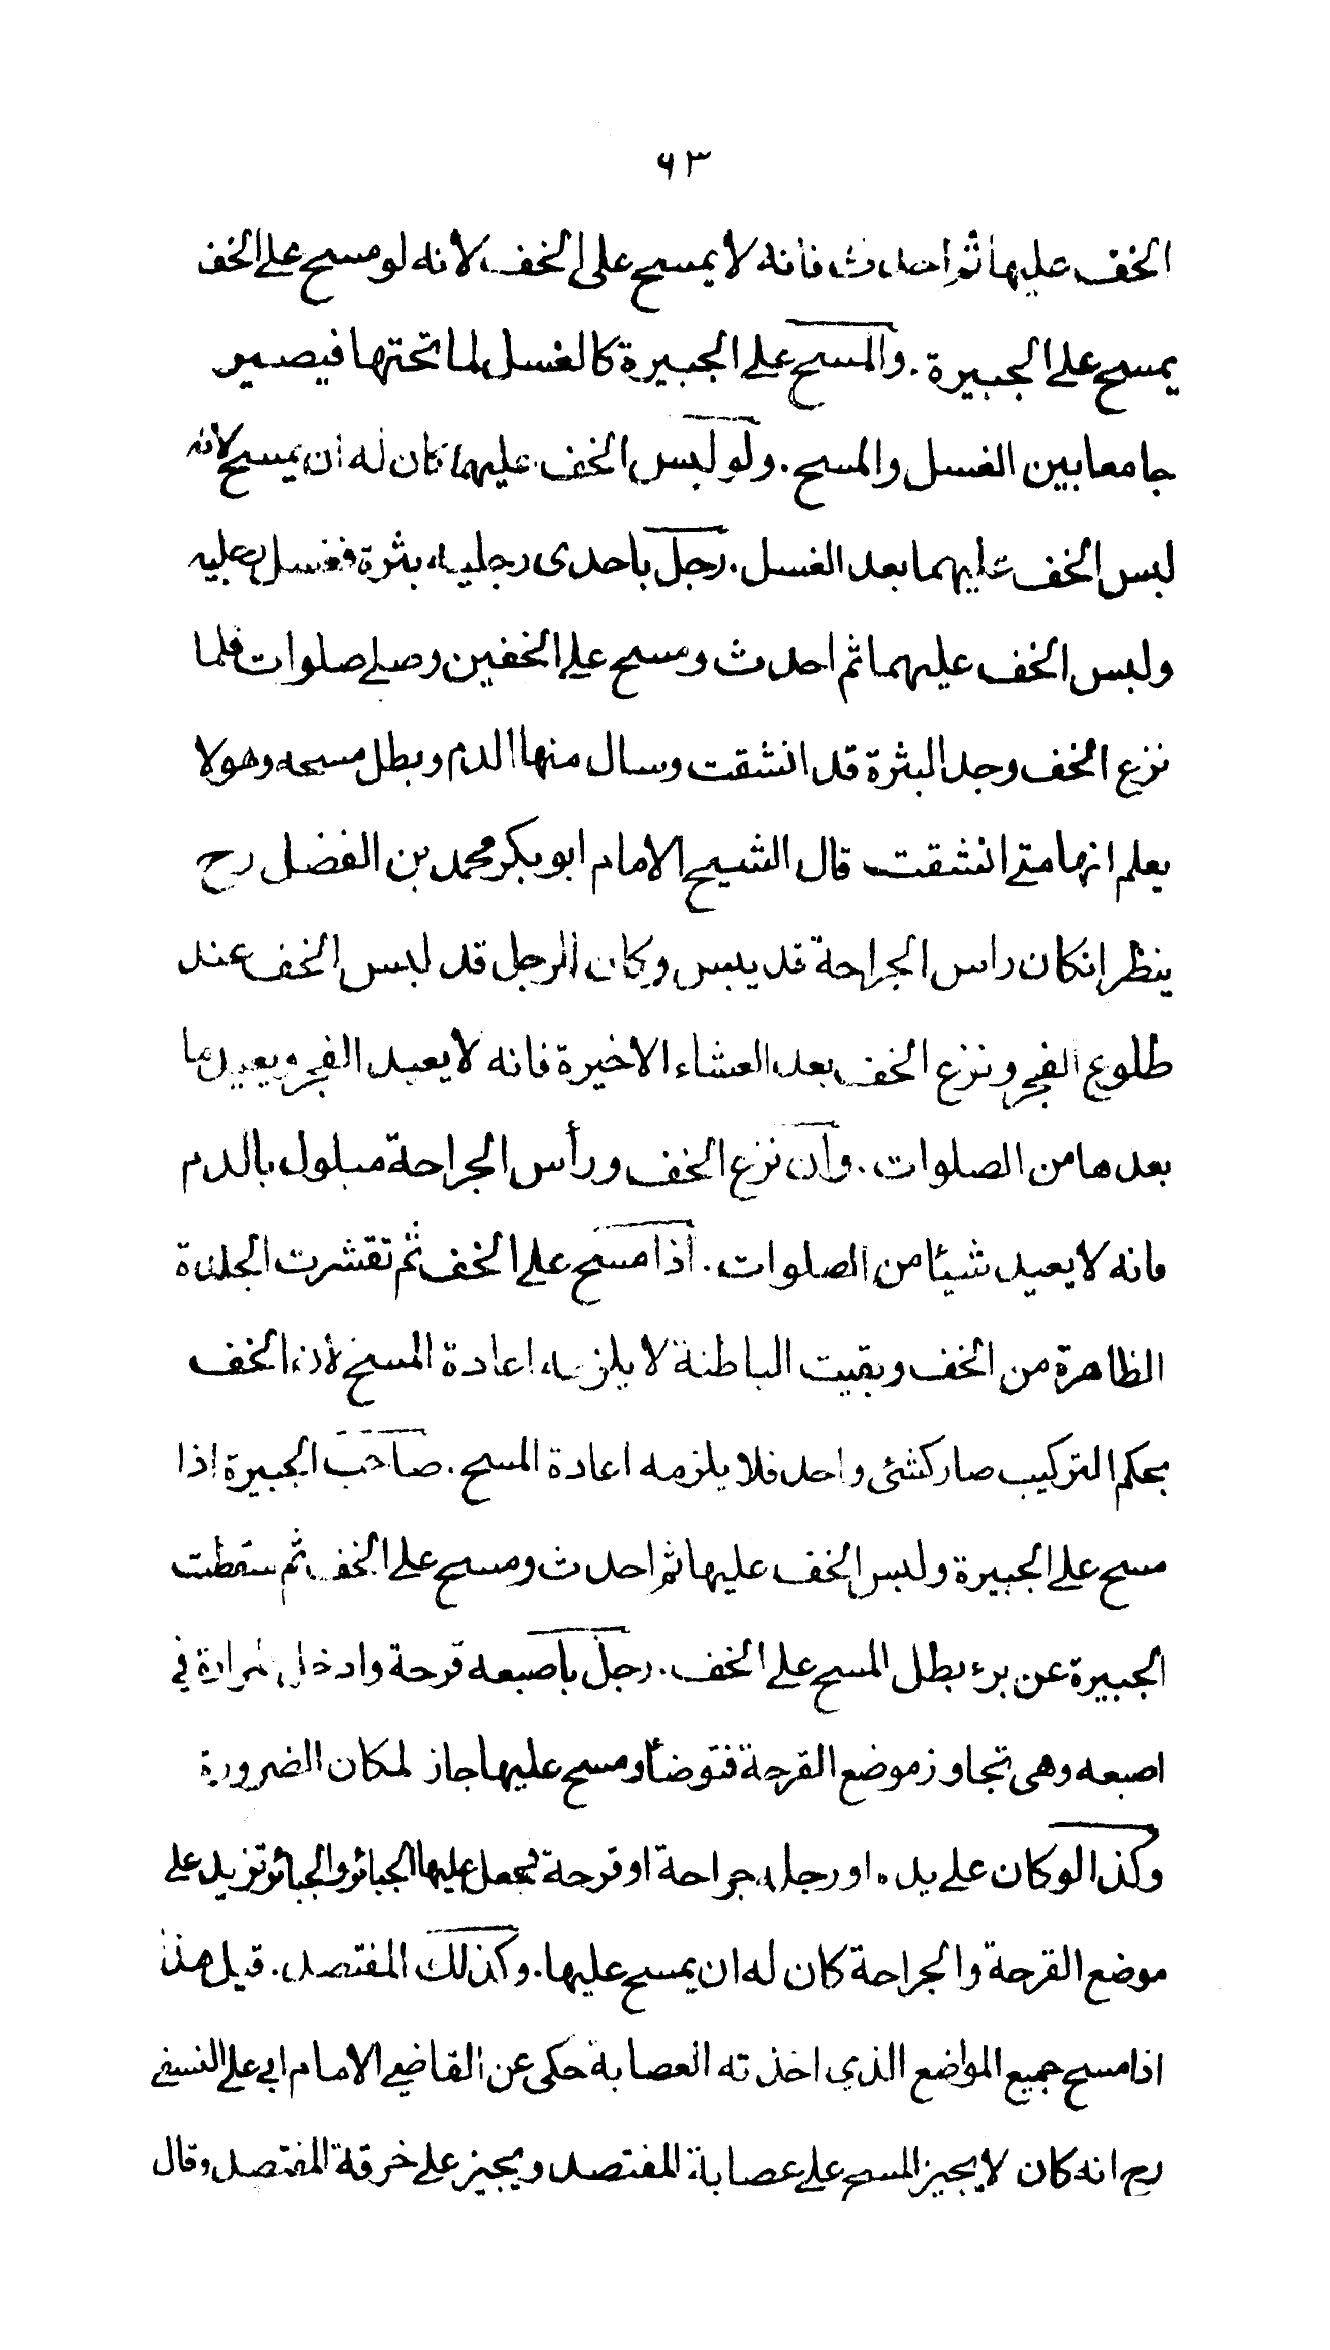 ٦٣
الخف عليها ثم احدث فانه لا يمسح على الخف لانه لو مسح على الخف
يمسح على الجبيرة . والمسح على الجبيرة كالغسل لما تحتها فيصير
جامعا بين الغسل والمسح . ولو لبس الخف عليهما كان له ان يمسح لانه
لبس الخف عليهما بعد الغسل . رجل باحدى رجليه بثرة فغسل رجليه
ولبس الخف عليهما ثم احدث ومسح على الخفين وصلى صلوات فلما
نزع الخف وجد البثرة قد انشقت وسال منها الدم وبطل مسحه وهو لا
يعلم انها متى انشقت قال الشيخ الامام ابو بكر محمد بن الفضل رح
ينظر انكان راس الجراحة قد يبس وكان الرجل قد لبس الخف عند
طلوع الفجر ونزع الخف بعد العشاء الاخيرة فانه لا يعيد الفجر ويعيد ما
بعدها من الصلوات . وان نزع الخف ورأس الجراحة مبلول بالدم
فانه لا يعيد شيئا من الصلوات . اذا مسح على الخف ثم تقشرت الجلدة
الظاهرة من الخف وبقيت الباطنة لا يلزمه اعادة المسح لأن الخف
بحكم التركيب صار كشئ واحد فلا يلزمه اعادة المسح . صاحب الجبيرة اذا
مسح على الجبيرة ولبس الخف عليها ثم احدث ومسح على الخف ثم سقطت
الجبيرة عن برء بطل المسح على الخف . رجل باصبعه قرحة وادخل مرارة في
اصبعه وهى تجاوز موضع القرحة فتوضأ ومسح عليها جاز لمكان الضرورة
وكذا لو كان على يده او رجله جراحة او قرحة فجعل عليها الجبائر والجبائر تزيد على
موضع القرحة والجراحة كان له ان يمسح عليها . وكذلك المفتصد . قيل هذا
اذا مسح جميع المواضع الذي اخذته العصابة حكى عن القاضي الامام ابي على النسفي
رح انه كان لا يجيز المسح على عصابة المفتصد ويجيز على خرقة المفتصد وقال